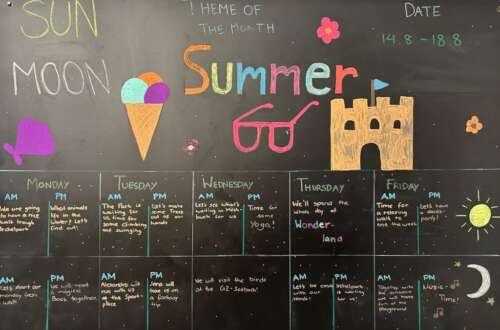 SUN
MOON
THEME OF
THE MONTH
Summer
DATE
14.8 - 18.8
MONDAY
TUESDAY
WEDNESDAY
THURSDAY
FRIDAY
AM
PM
We are going
to have a nice
walk through
What animals
life in the
water? Let's
find out!
AM
PM
The Park is
waiting for
us. Time for
some climbing
and swinging
Let's make
some Trees
out of our
hands
AM
PM
Let's see
what's
waiting in
for us
Time for
some
Yoga!
We'll spend the
whole day at
Wonder-
land
AM
PM
Time for
a relaxing
walk to
end the week
Let's have
a dance
party!
AM
PM
Let's start our
monday
walk
We will read
a magical
Book together
AM
PM
Alexandra will
run with us
at the Sport
place
Jana will
take us on
a fantasy
trip
We will visit the birds
at the
AM
PM
Let's be
with our
is waiting
for us!
AM
PM
Together with
we will make
the
Playground
Music -
Time!